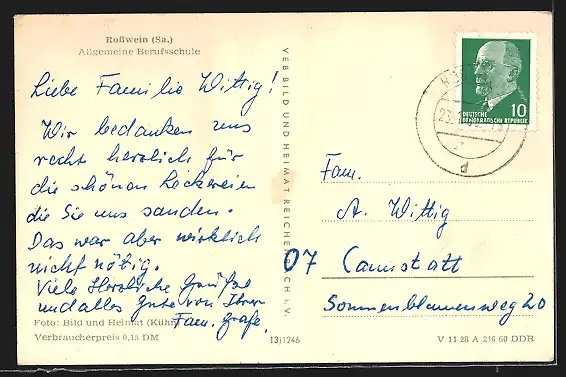 Roßwein (Sa.)
Allgemeine Berufsschule
Liebe Familie Wittig!
Wir bedanken uns
recht herzlich für
die schönen Leckereien
die Sie uns sanden.
Das war aber wirklich
nicht nötig.
Viele Herzliche Grüße
und alles Gute von Ihrer
Fam. Grafe
Foto: Bild und Heimat (Kühn)
Verbraucherpreis 0,15 DM
13/1246
VEB BILD UND HEIMAT REICHENBACH i. V.
10
DEUTSCHE
DEMOKRATISCHE REPUBLIK
d
Fam.
A. Wittig
07 Cannstatt
Sonnenblumenweg 20
V 11 28 A 216 60 DDR